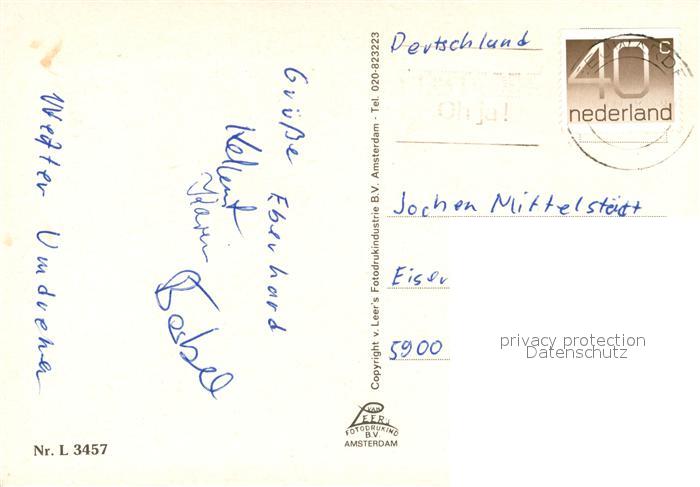 Grüße Eberhard
Karin
Nr. L 3457
Copyright v. Leer's Fotodrukindustrie B.V. Amsterdam - Tel. 020-823223
VAN
LEER's
FOTODRUKIND
B.V.
AMSTERDAM
Deutschland
Oh ja!
40c
nederland
Jochen Mittelstädt
Eiser
5900
privacy protection
Datenschutz